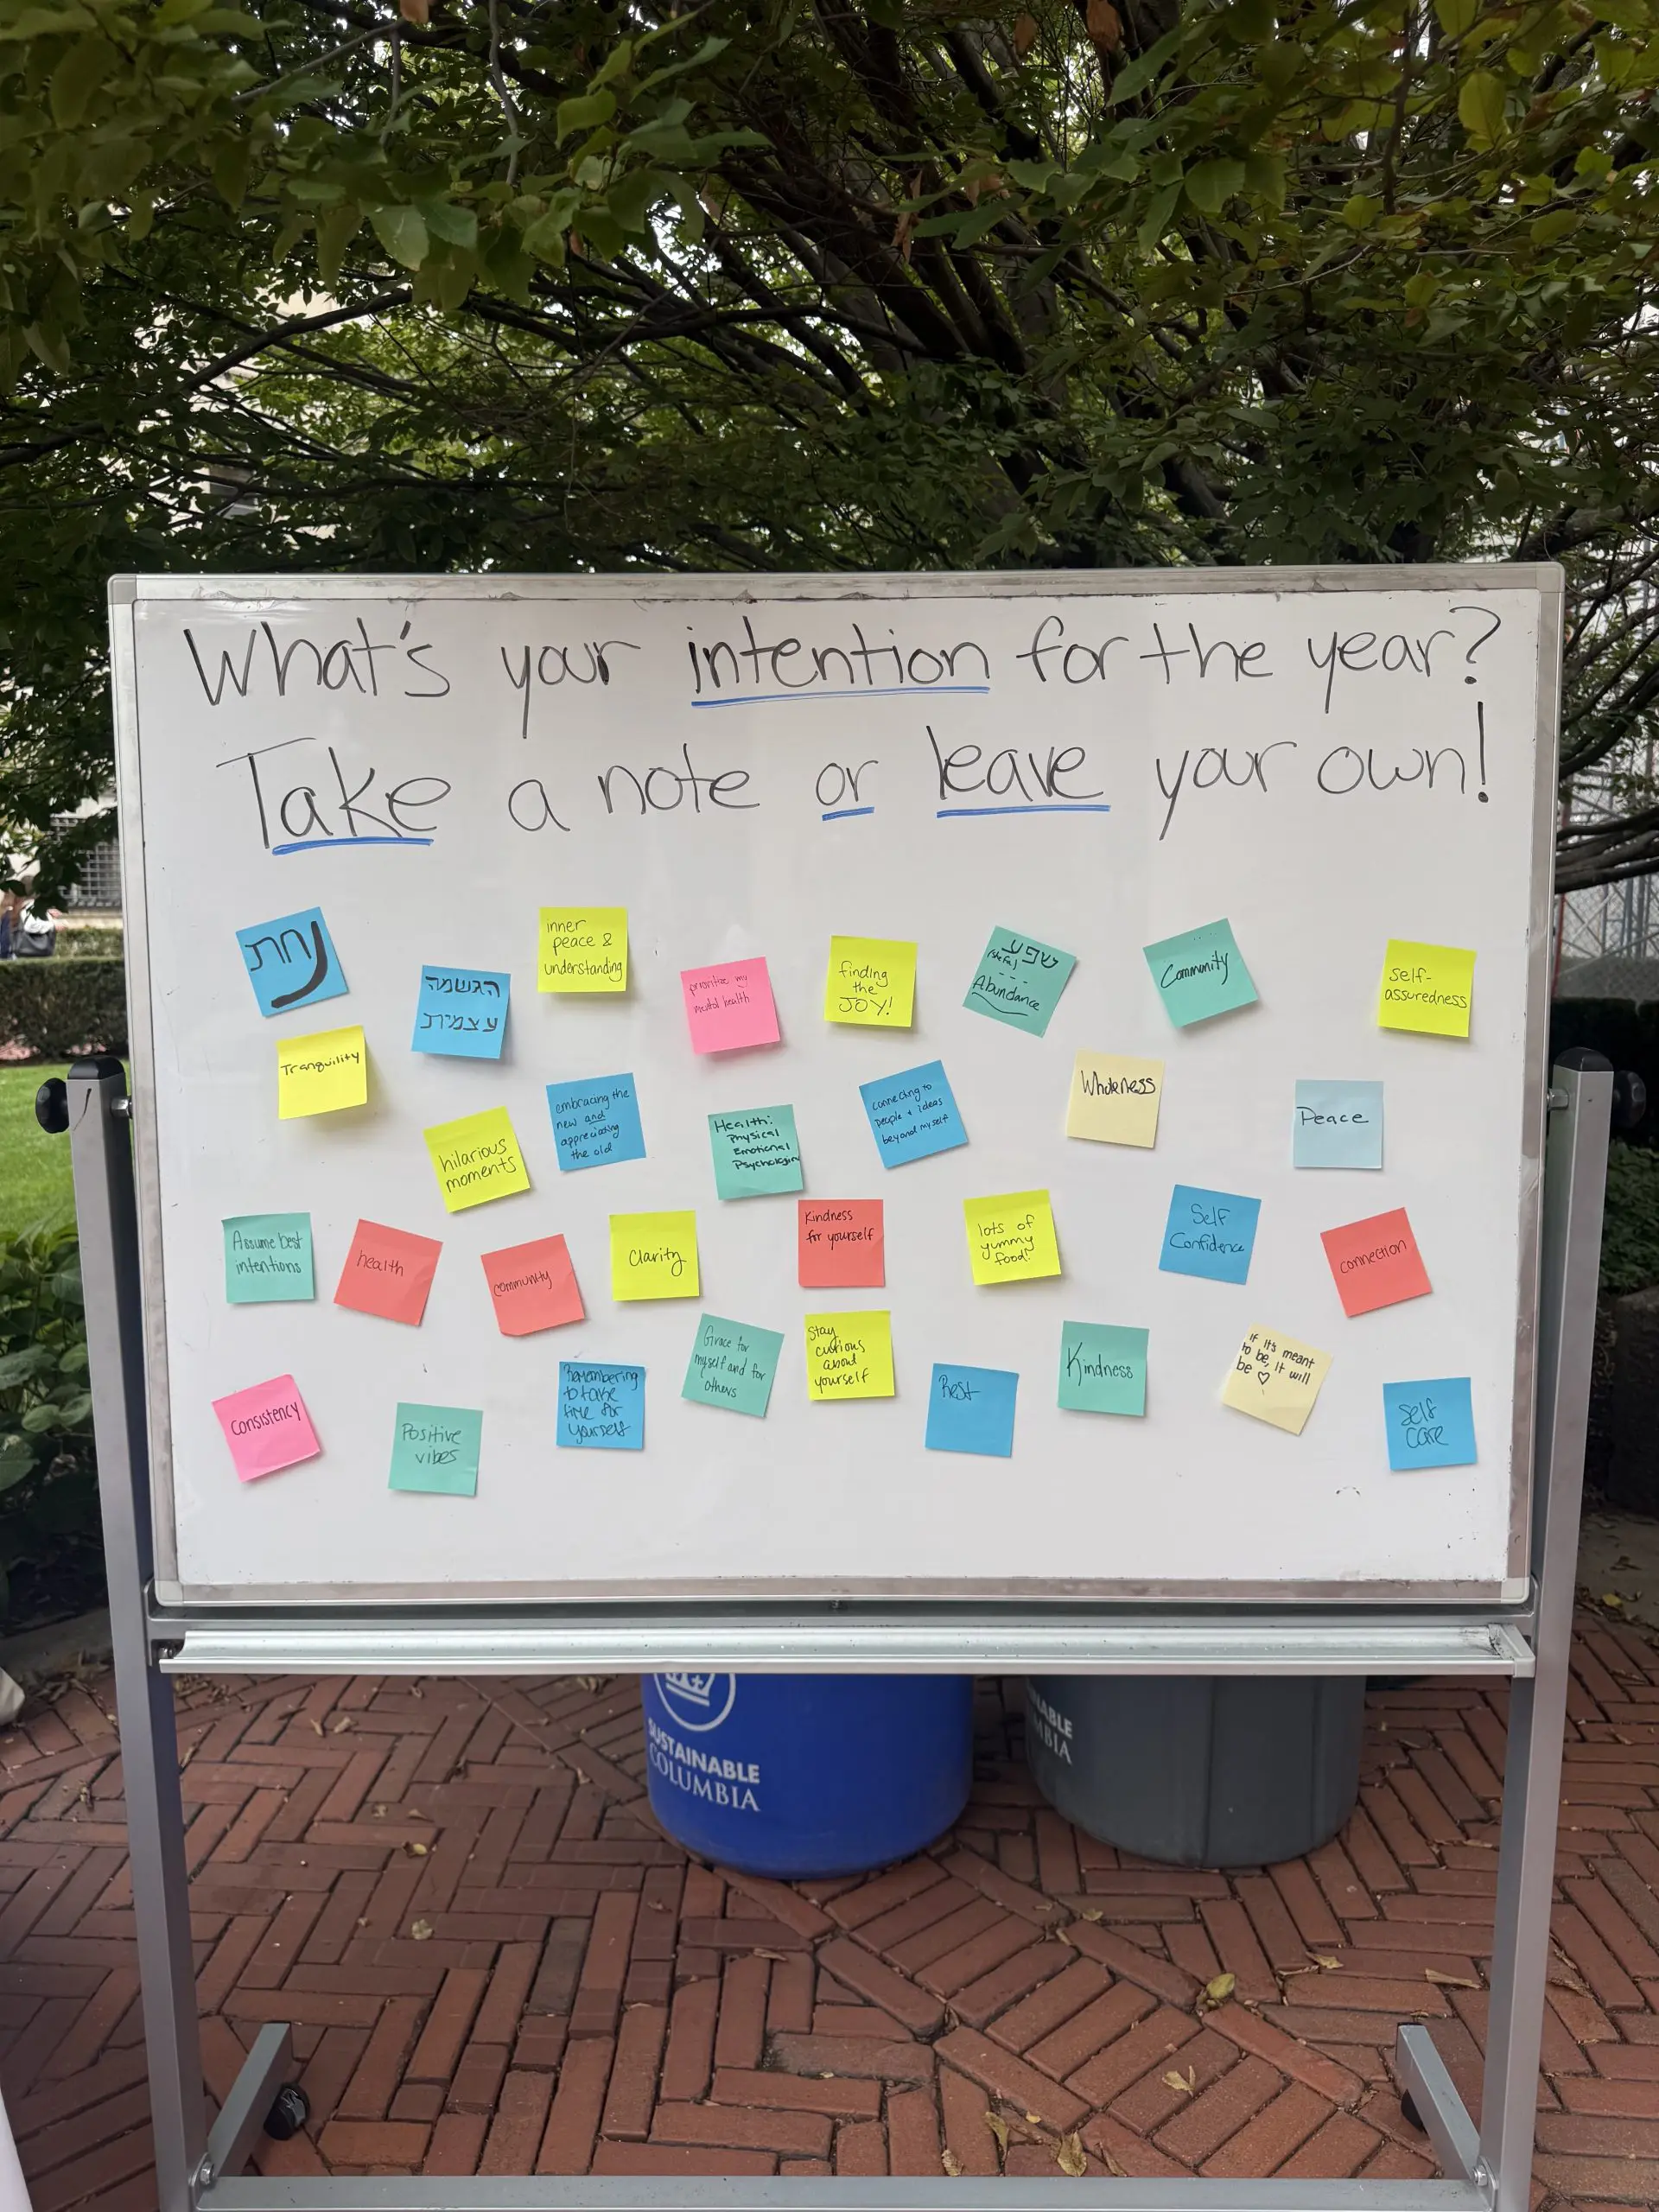 What's your intention for the year?
Take a note or leave your own!
נחת
הגשמה
עצמית
inner
peace &
understanding
prioritize my
mental health
finding
the
JOY!
שפע
(shefa)
Abundance
Community
self-
assuredness
Tranquility
hilarious
moments
embracing the
new and
appreciating
the old
Health:
Physical
Emotional
Psychological
connecting to
people + ideas
beyond myself
Wholeness
Peace
Assume best
intentions
health
community
Clarity
Kindness
for yourself
lots of
yummy
food!
Self
Confidence
connection
Consistency
Positive
vibes
Remembering
to take
time for
yourself
Grace for
myself and for
others
Stay
curious
about
yourself
Rest
Kindness
If it's meant
to be, it will
be ♡
Self
care
SUSTAINABLE
COLUMBIA
NABLE
MBIA